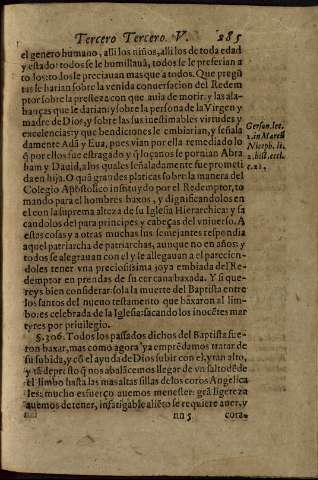 Tercero Tercero. V. 285
el genero humano, alli los niños, alli los de toda edad
y estado: todos se le humillauã, todos se le preferian a
todos: todos le preciauan mas que a todos. Que pregũ
tas se harian sobre la venida conuersation del Redem
ptor sobre la presteza con que auia de morir: y las ala-
banças que le darian: y sobre la persona de la Virgen y
madre de Dios, y sobre las sus inestimables virtudes y
excelencias: y que bendiciones le embiarian, y señala
damente Adã y Eua, pues vian por ella remediado lo
q̃ por ellos fue estragado y q̃ loçanos se pornian Abra
ham y Dauid, a los quales señaladamente fue prometi
da en hija. O quã grandes platicas sobre la manera del
Colegio Apostolico instituydo por el Redemptor, to
mando para el hombres baxos, y dignificandolos en
el con la suprema alteza de su Iglesia Hierarchica: y sa
candolos del para principes y cabeças del vniuerso. A
estas cosas y a otras muchas sus semejantes respondia
aquel patriarcha de patriarchas, aunque no en años: y
todos se alegrauan con el y le allegauan a el parecien-
doles tener vna preciosissima joya embiada del Re-
demptor en prendas de su cercana baxada. Y si que-
reys bien considerar: sola la muerte del Baptista entre
los santos del nueuo testamento que baxaron al lim-
bo: es celebrada de la Iglesia: sacando los inocẽtes mar
tyres por priuilegio.
§. 306. Todos los passados dichos del Baptista fue-
ron baxar, mas como agora ya emprẽdamos tratar de
su subida, y cõ el ayuda de Dios subir con el, y tan alto,
y tã depresto q̃ nos abalãcemos llegar de vn salto dẽde
el limbo hasta las mas altas sillas de los coros Angelica
les: mucho esfuerço auemos menester: grã ligereza
auemos de tener, infatigable aliẽto se requiere auer, y
nn 5 cora-
Gerson. lec.
2. in Marcũ
Niceph. li.
2. hist. eccl.